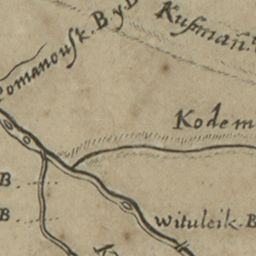 Romanousk. B y B
Kusman
Kodem
B
B
Wituleik. B